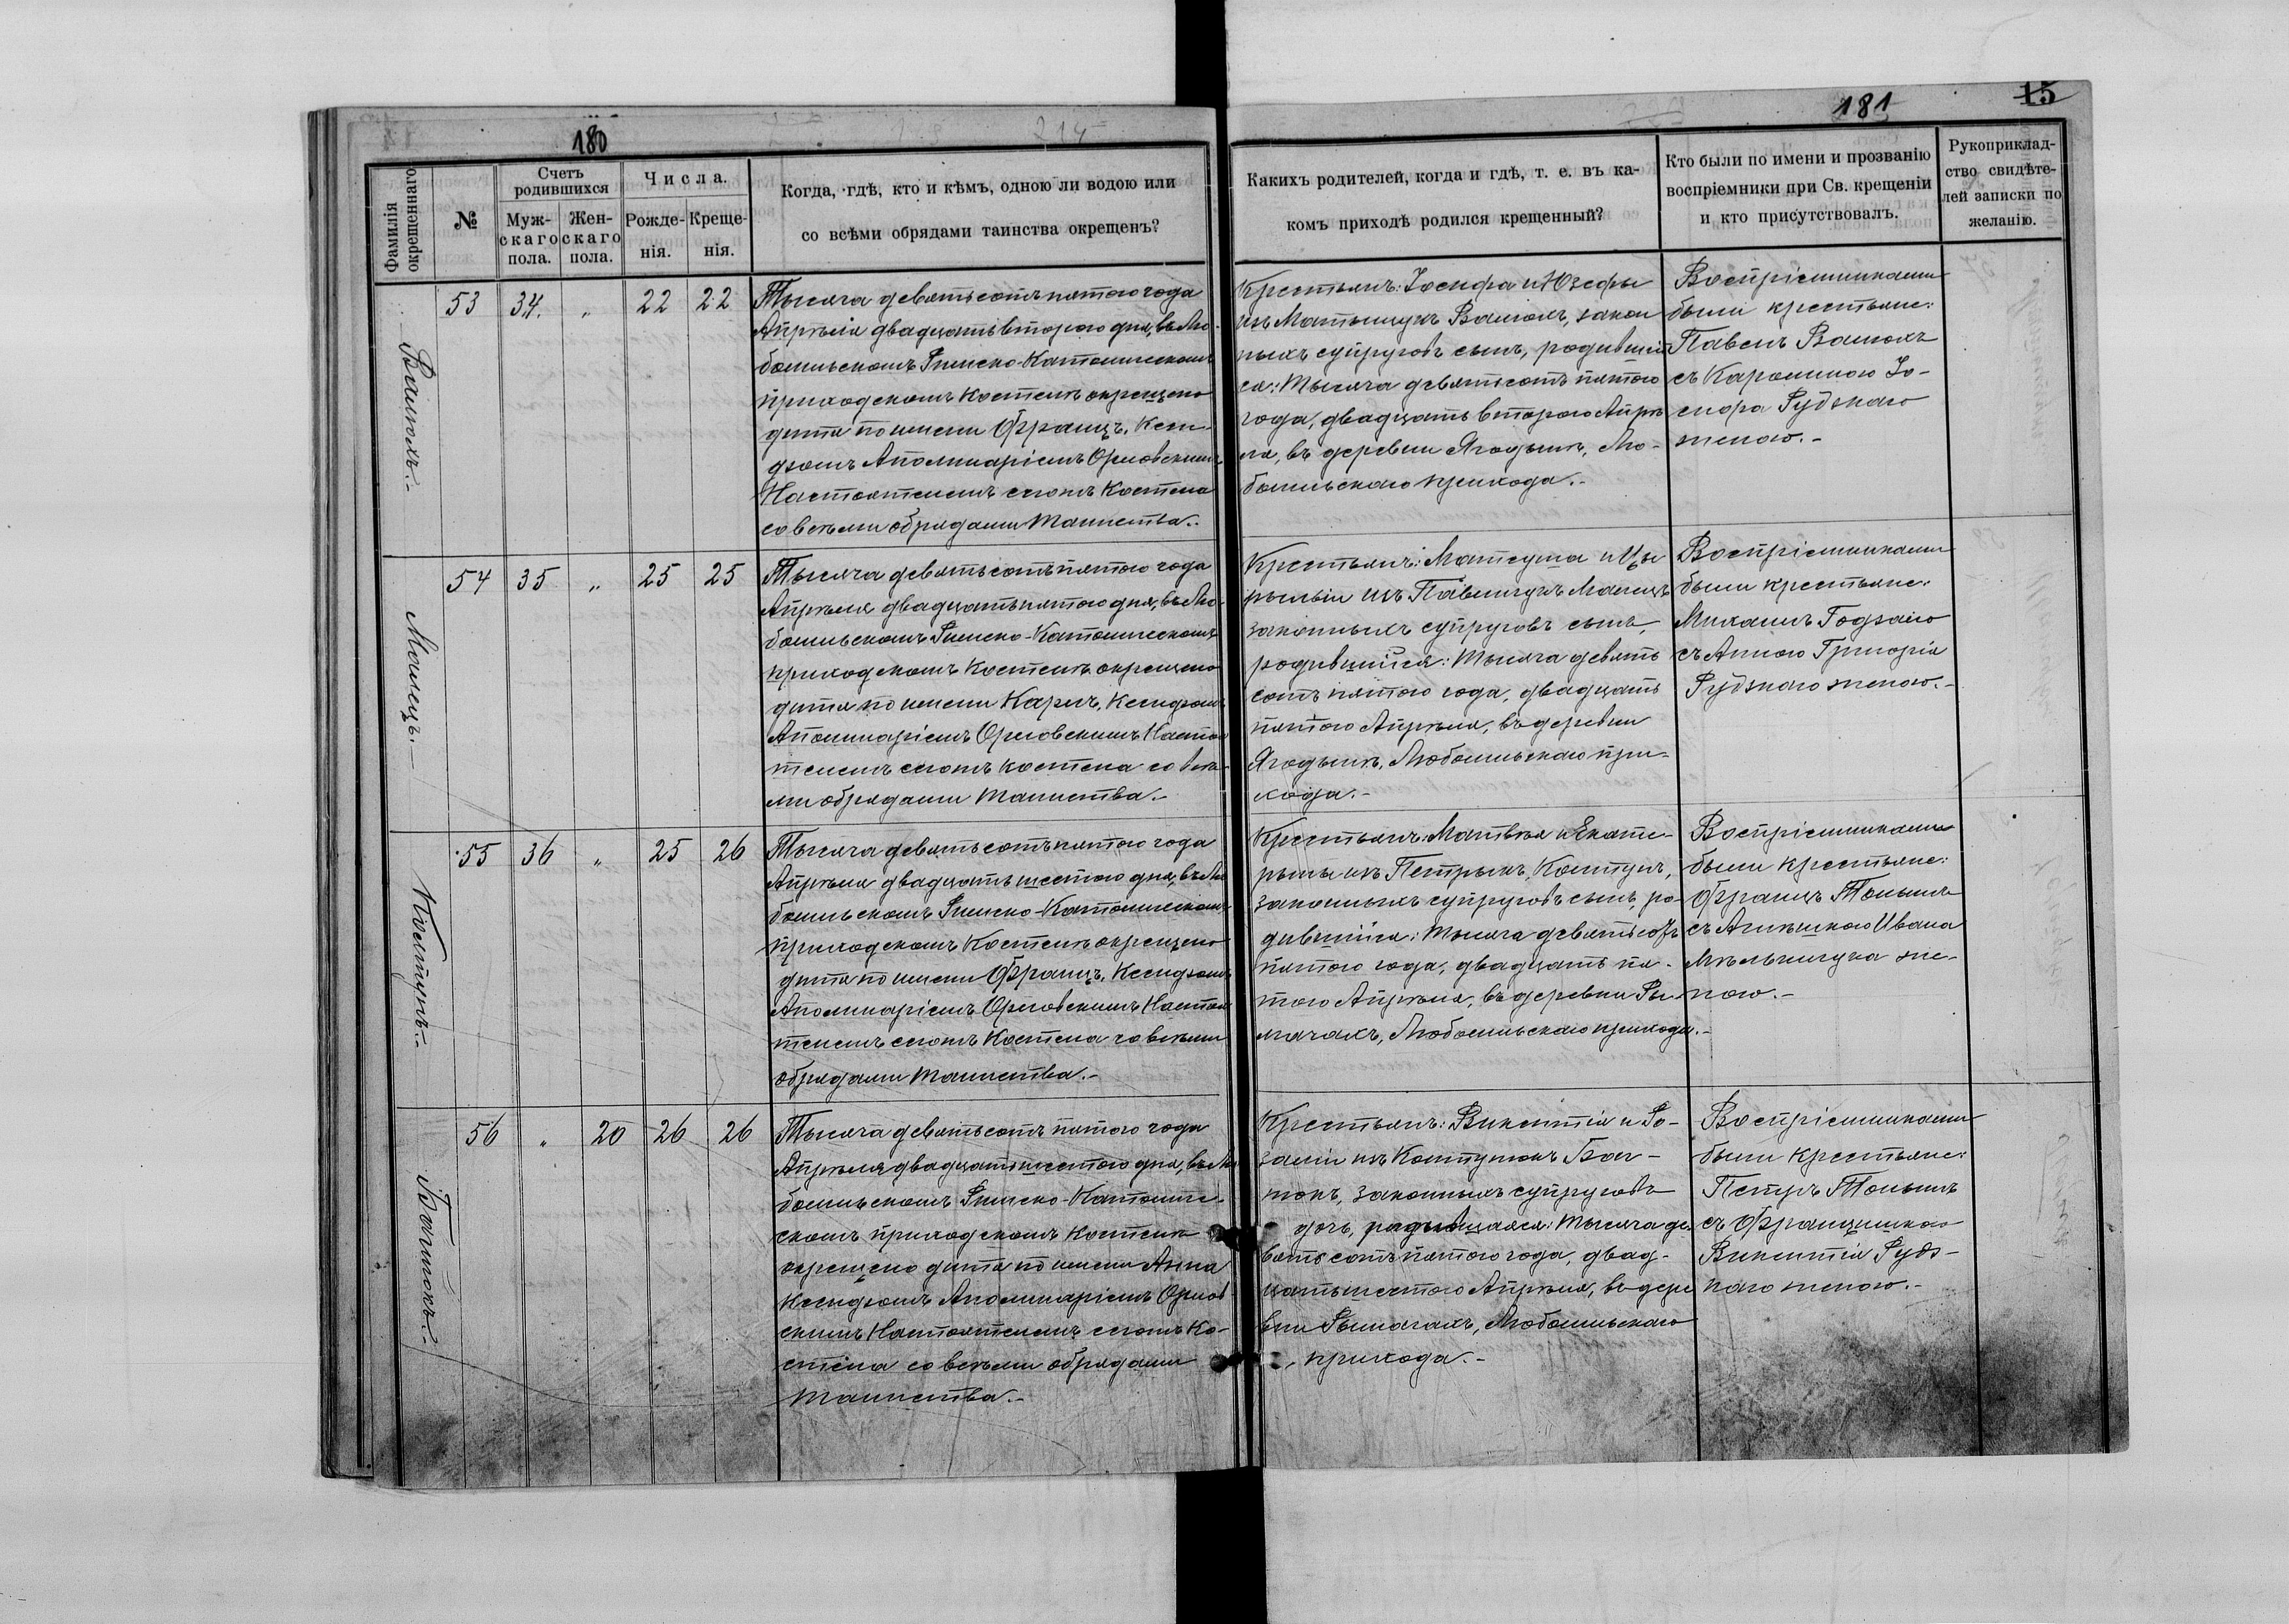 180
214
Фамилія окрещеннаго
№
Счетъ родившихся
Муж-скаго пола.
Жен-скаго пола.
Числа.
Рожде-нія.
Креще-нія.
Когда, гдѣ, кто и кѣмъ, одною ли водою или
со всѣми обрядами таинства окрещенъ?
53 34. „ 22 22
Тысяча девятьсотъ пятого года
Апрѣля двадцать второго дня, въ Лю-
бомльскомъ Римско-Католическомъ
приходскомъ Костелѣ окрещено
дитя по имени Францъ, Ксен-
дзомъ Аполинаріемъ Орловскимъ
Настоятелемъ сего Костела
со всѣми обрядами Таинства.-
Малецъ.-
54 35 „ 25 25
Тысяча девятьсотъ пятого года
Апрѣля двадцать пятого дня, въ Лю-
бомльскомъ Римско-Католическомъ
приходскомъ Костелѣ окрещено
дитя по имени Карлъ, Ксендзомъ
Аполинаріемъ Орловскимъ Настоя
телемъ сего костела со всѣ-
ми обрядами Таинства.-
Колтунъ.-
55 36 „ 25 26
Тысяча девятьсотъ пятого года
Апрѣля двадцать шестого дня, въ Лю
бомльскомъ Римско-Католическомъ
приходскомъ Костелѣ окрещено
дитя по имени Францъ, Ксендзомъ
Аполинаріемъ Орловскимъ Настоя
телемъ сего Костела со всѣми
обрядами Таинства.-
56 „ 20 26 26
Тысяча девятьсотъ пятого года
Апрѣля двадцать шестого дня, въ Лю
бомльскомъ Римско-Католиче-
скомъ приходскомъ Костелѣ
окрещено дитя по имени Анна
Ксендзомъ Аполинаріемъ Орлов
скимъ Настоятелемъ сего Ко-
стела со всѣми обрядами
Таинства.-
181
15
Какихъ родителей, когда и гдѣ, т. е. въ ка-
комъ приходѣ родился крещенный?
Кто были по имени и прозванію
воспріемники при Св. крещеніи
и кто присутствовалъ.
Рукоприклад-
ство свидѣте-
лей записки по
желанію.
Крестьянъ: Іосифа и Юзефы
изъ закон
ныхъ супруговъ сынъ, родившій
ся: Тысяча девятьсотъ пятого
года, двадцать второго Апрѣ
ля, въ деревни Ягодынѣ, Лю-
бомльскаго прихода.-
Воспріемниками
были крестьяне:
Павелъ
съ Каролиною Іо-
сифа Рудзкаго
женою.-
Крестьянъ: Матеуша и Цы
рыліи изъ Малецъ
законныхъ супруговъ сынъ,
родившійся: Тысяча девять
сотъ пятого года, двадцать
пятого Апрѣля, въ деревни
Ягодынѣ, Любомльскаго при-
хода.-
Воспріемниками
были крестьяне:
Михаилъ
съ Анною Григорія
Рудзкаго женою.-
Крестьянъ: Матвѣя и Екате-
рыны изъ Колтунъ,
законныхъ супруговъ сынъ, ро-
дившійся: Тысяча девятьсотъ
пятого года, двадцать пя-
того Апрѣля, въ деревни Ры-
мачахъ, Любомльскаго прихода.-
Воспріемниками
были крестьяне:
Францъ
съ Агнѣшкою Ивана
Мѣльничука же-
ною.-
Крестьянъ: Викентія и Ро-
заліи изъ
законныхъ супруговъ
дочь, родившаяся: Тысяча де
вятьсотъ пятого года, двад-
цать шестого Апрѣля, въ дере
вни Рымачахъ, Любомльскаго
прихода.-
Воспріемниками
были крестьяне:
Петръ
съ Францишкою
Викентія Рудз-
каго женою.-